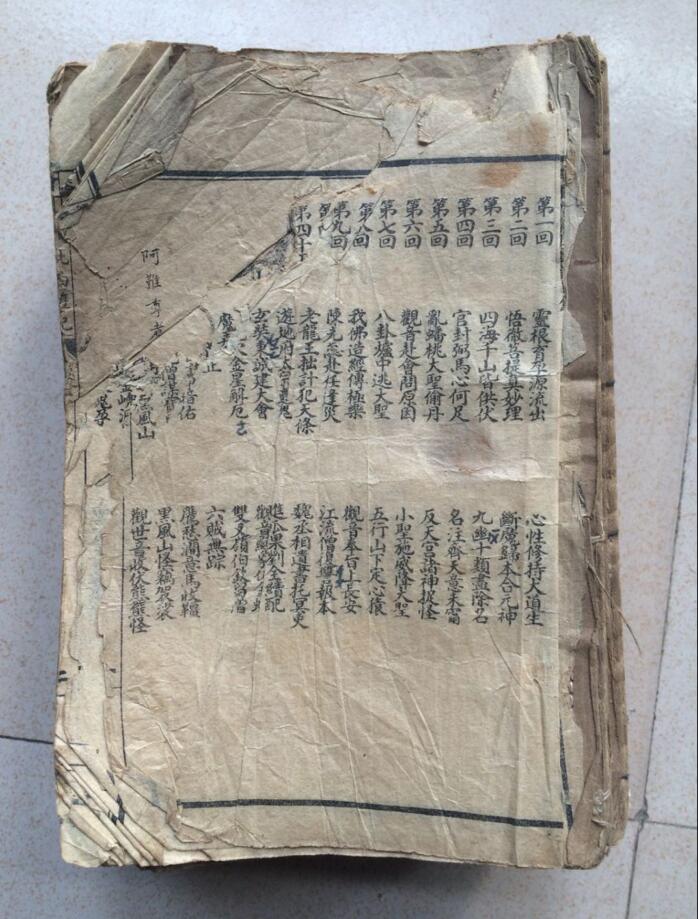 第一回 靈根育孕源流出 心性修持大道生
第二回 悟徹菩提真妙理 斷魔歸本合元神
第三回 四海千山皆供伏 九幽十類盡除名
第四回 官封弼馬心何足 名注齊天意未甯
第五回 亂蟠桃大聖偷丹 反天宮諸神捉怪
第六回 觀音赴會問原因 小聖施威降大聖
第七回 八卦爐中逃大聖 五行山下定心猿
第八回 我佛造經傳極樂 觀音奉旨上長安
第九回 陳光蕊赴任逢災 江流僧復讐報本
老龍王拙計犯天條 魏丞相遺書托冥吏
第四十 遊地府太宗還魂 進瓜果劉全續配
玄奘秉誠建大會 觀音顯
金星解厄 雙叉嶺伯欽留僧
六賊無踪
鷹愁澗意馬收韁
黑風山怪竊袈裟
風山 觀世音收伏熊羆怪
阿難尊者